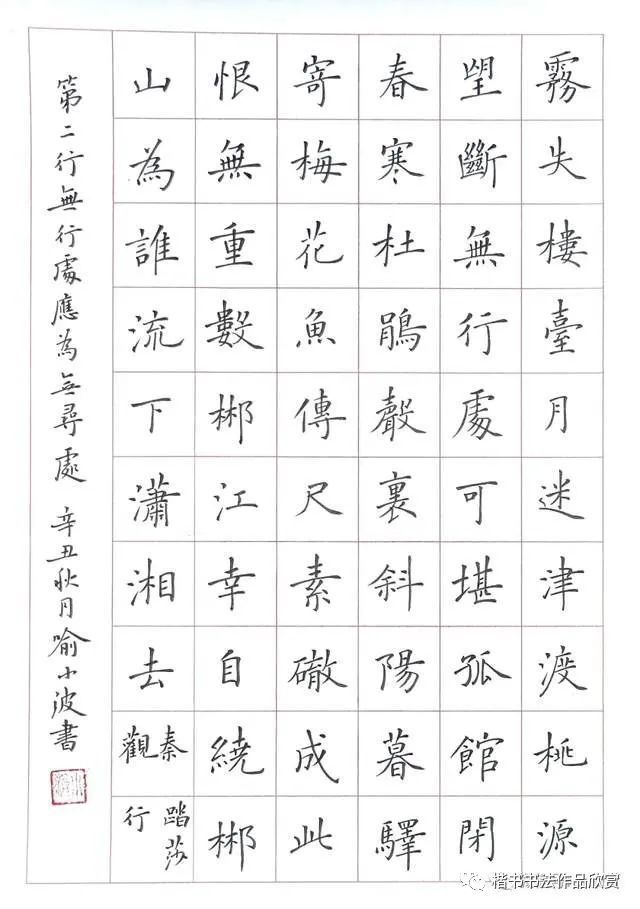 霧失樓臺月迷津渡桃源
望斷無行處可堪孤館閉
春寒杜鵑聲裏斜陽暮驛
寄梅花魚傳尺素成此
恨無重數郴江幸自繞郴
山為誰流下瀟湘去
秦觀
踏莎行
第二行無行處應為無尋處 辛丑秋月喻小波書
楷书书法作品欣赏